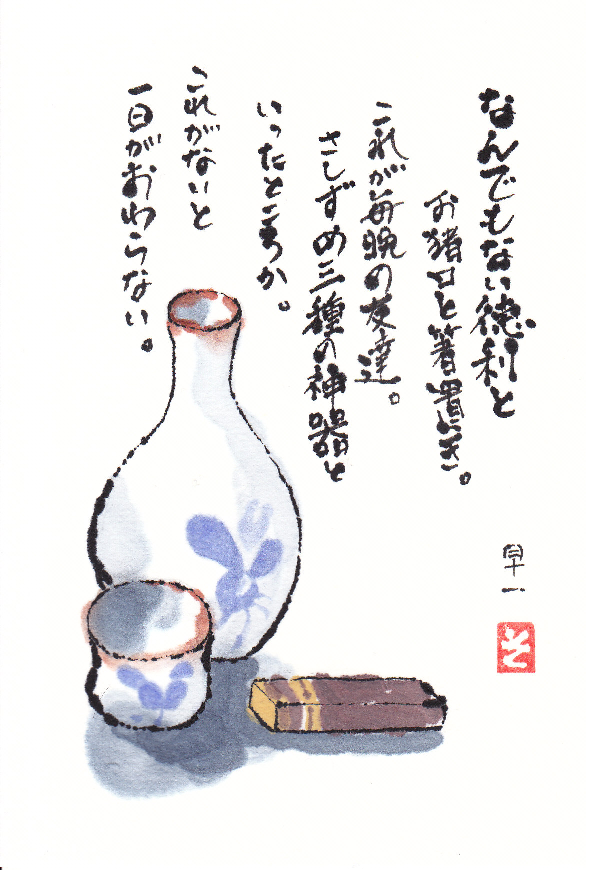 なんでもない徳利と
お猪口と箸置き。
これが毎晩の友達。
さしずめ三種の神器と
いったところか。
これがないと
一日がおわらない。
早一
そ